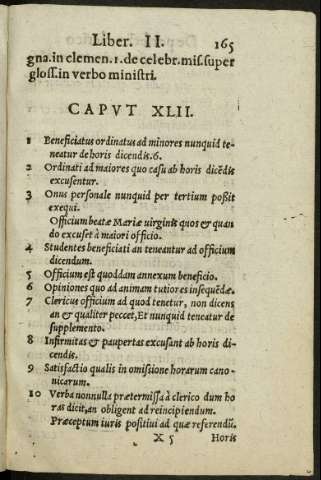 Liber. II. 165
gna.in clemen.1.de celebr.mis.super
gloss.in verbo ministri.
CAPVT XLII.
1 Beneficiatus ordinatus ad minores nunquid te-
neatur de horis dicendis.6.
2 Ordinati ad maiores quo casu ab horis dicẽdis
excusentur.
3 Onus personale nunquid per tertium possit
exequi.
Officium beatæ Mariæ virginis quos & quan
do excuset à maiori officio.
4 Studentes beneficiati an teneantur ad officium
dicendum.
5 Officium est quoddam annexum beneficio.
6 Opiniones quo ad animam tutiores insequẽdæ.
7 Clericus officium ad quod tenetur, non dicens
an & qualiter peccet, Et nunquid teneatur de
supplemento.
8 Infirmitas & paupertas excusant ab horis di-
cendis.
9 Satisfactio qualis in omissione horarum cano-
nicarum.
10 Verba nonnulla prætermissa à clerico dum ho
ras dicit, an obligent ad reincipiendum.
Præceptum iuris positiui ad quæ referendũ.
X 5 Horis